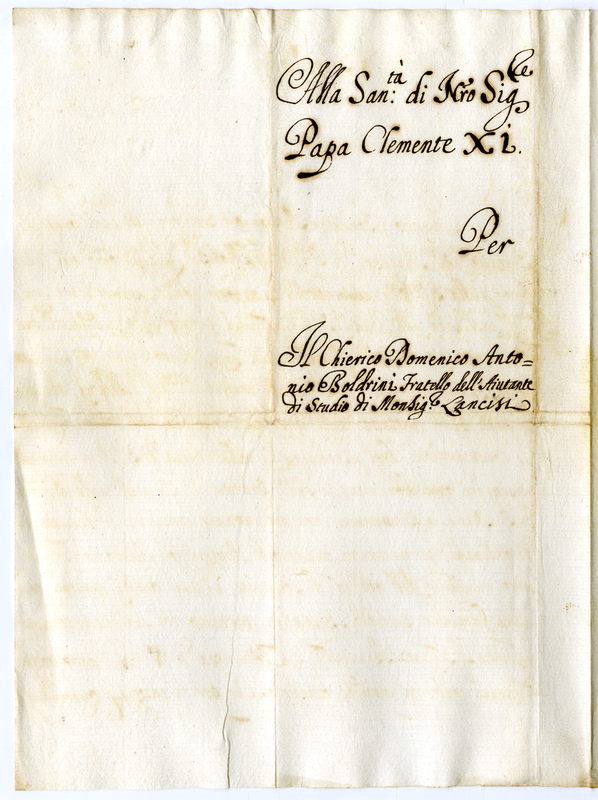 Alla San:tà di Nro Sigre
Papa Clemente XI.
Per
Il Chierico Domenico Anto=
nio Boldrini Fratello dell'Aiutante
di Studio di Monsig.re Lancisi